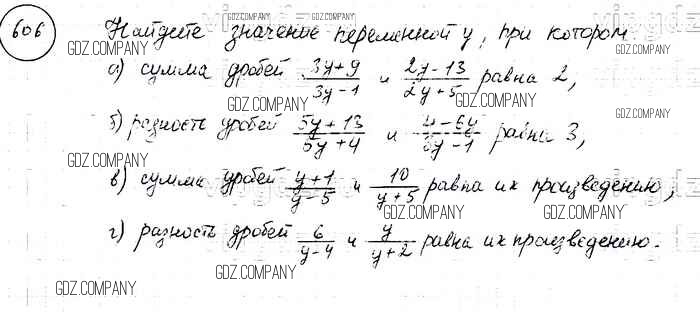 606 Найдите значение переменной y, при котором
GDZ.COMPANY
а) сумма дробей (3y+9)/(3y-1) и (2y-13)/(2y+5) равна 2,
GDZ.COMPANY GDZ.COMPANY
б) разность дробей (5y+13)/(5y+4) и (4-6y)/(3y-1) равна 3,
GDZ.COMPANY GDZ.COMPANY
в) сумма дробей (y+1)/(y-5) и 10/(y+5) равна их произведению;
GDZ.COMPANY GDZ.COMPANY
г) разность дробей 6/(y-4) и y/(y+2) равна их произведению.
GDZ.COMPANY
GDZ.COMPANY